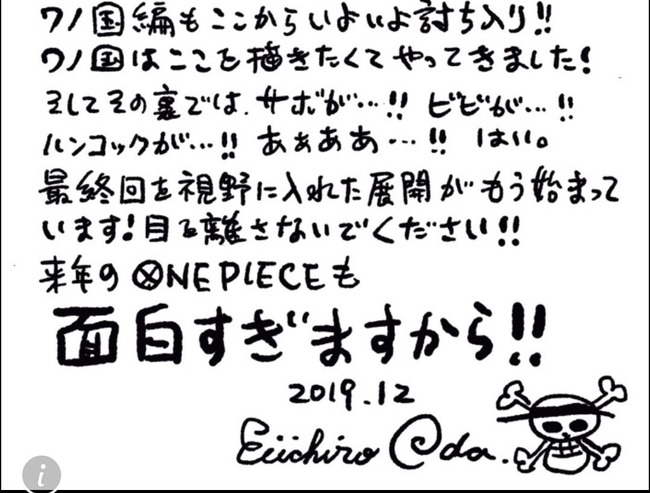 ワノ国編もここからいよいよ討ち入り!!
ワノ国はここを描きたくてやってきました!
そしてその裏では、サボが…!! ビビが…!!
ハンコックが…!! あぁああ…!! はい。
最終回を視野に入れた展開がもう始まって
います!目を離さないでください!!
来年のONE PIECEも
面白すぎますから!!
2019.12
Eiichiro Oda.
i